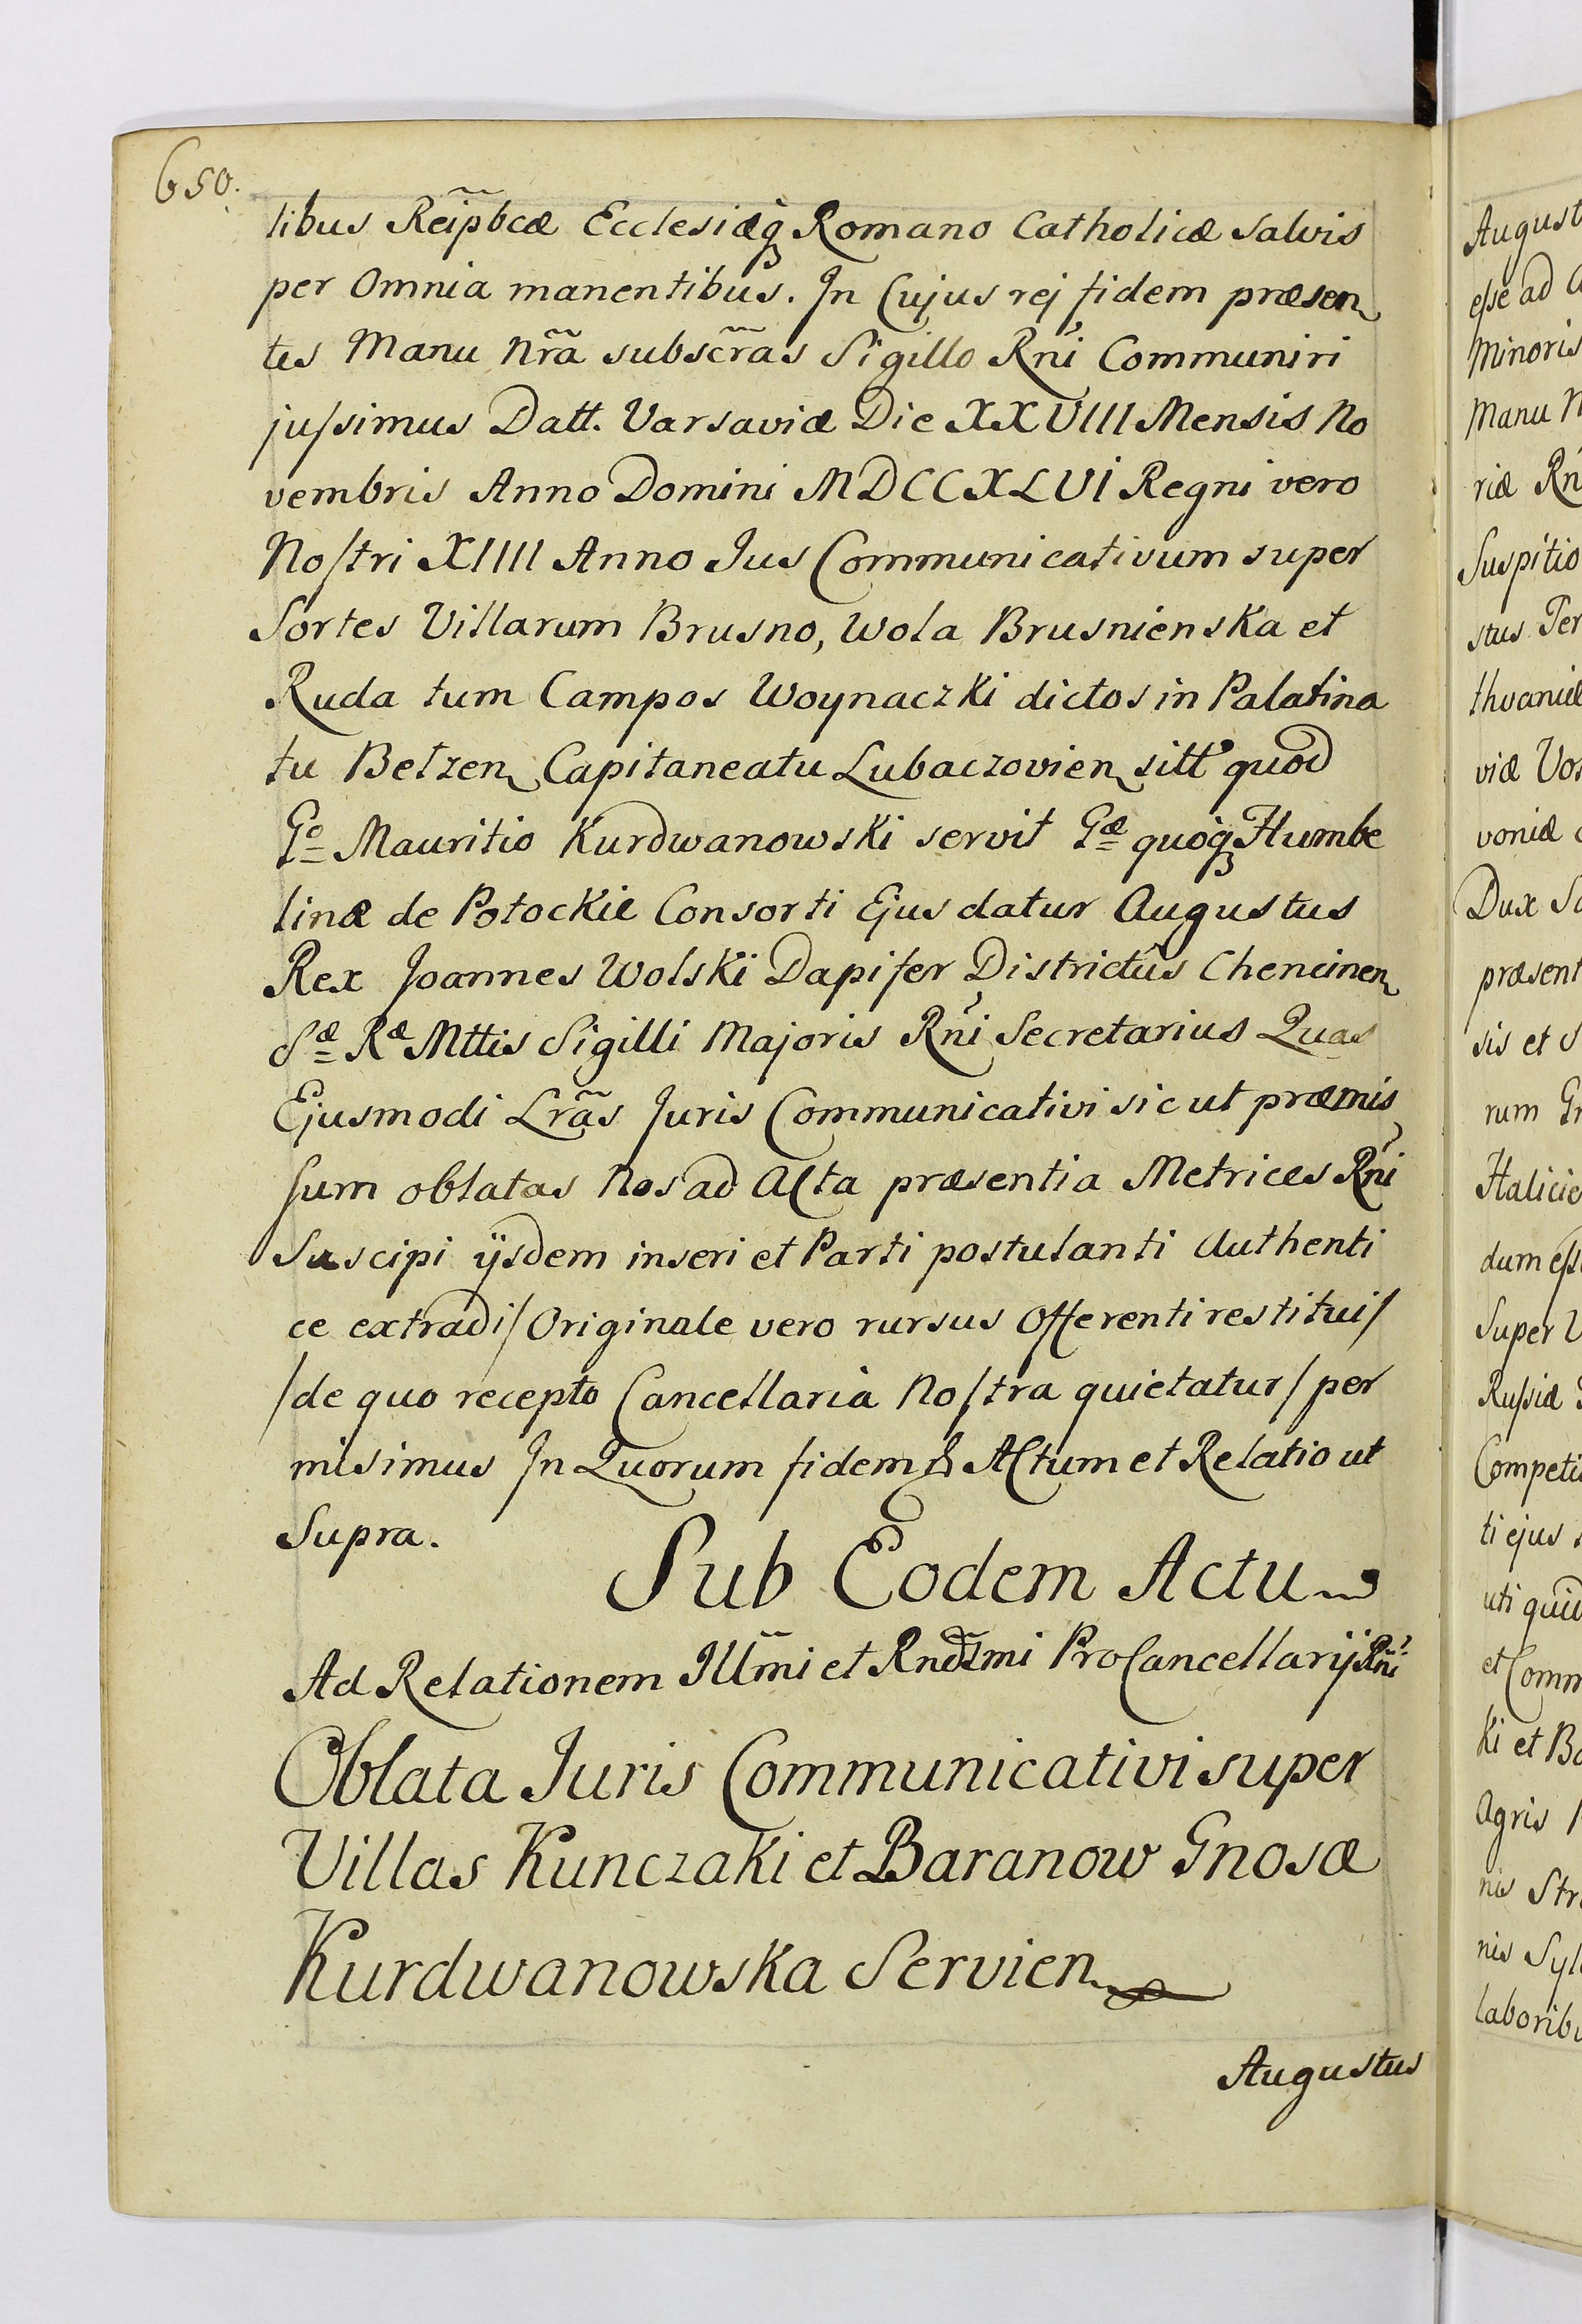 650.
tibus Reip̃bcæ Ecclesiæq́ꝫ Romano Catholicæ Salvis
per Omnia manentibus. In Cujus rej fidem præsen
tes Manu Nr̃a subscr̃as Sigillo Rñi Communiri
juſsimus Datt. Varsaviæ Die XXVIII Mensis No
vembris Anno Domini MDCCXLVI Regni vero
Noſtri XIIII Anno Jus Communicativum super
Sortes Villarum Brusno, Wola Brusnienska et
Ruda tum Campos Woynaczki dictos in Palatina
tu Belzen Capitaneatu Lubaczovien sitt quod
Gº Mauritio Kurdwanowski servit Gæ quoqꝫ Humbe
linæ de Potockie Consorti Ejus datur Augustus
Rex Joannes Wolski Dapifer Districtûs Chencinen
Sæ Ræ Mttis Sigilli Majoris Rñi Secretarius Quas
Ejusmodi Lr̃as Juris Communicativi sic ut præmis
sum oblatas Nos ad Acta præsentia Metrices Rñi
Suscipi ijsdem inseri et Parti postulanti Authenti
ce extradi/ Originale vero rursus Offerenti restitui/
/de quo recepto Cancellaria Noſtra quietatur/ per
misimus In Quorum fidem Actum et Relatio ut
Supra.
Sub Eodem Actu
Ad Relationem Illm̃i et Rnd̃smi ProCancellarij Rñi
Oblata Juris Communicativi super
Villas Kunczaki et Baranow Gnosæ
Kurdwanowska Servien
Augustus
August
eſse ad
Minoris
Manu
riæ Rñ
Suspitio
stus Ter
thvaniæ
viæ Vo
voniæ
Dux Sa
præsent
sis et S
rum Gr
Halicie
dum eſs
Super V
Ruſsiæ
Competi
ti ejus
uti quid
et Comm
ki et Ba
Agris
nis Str
nis Syl
laborib